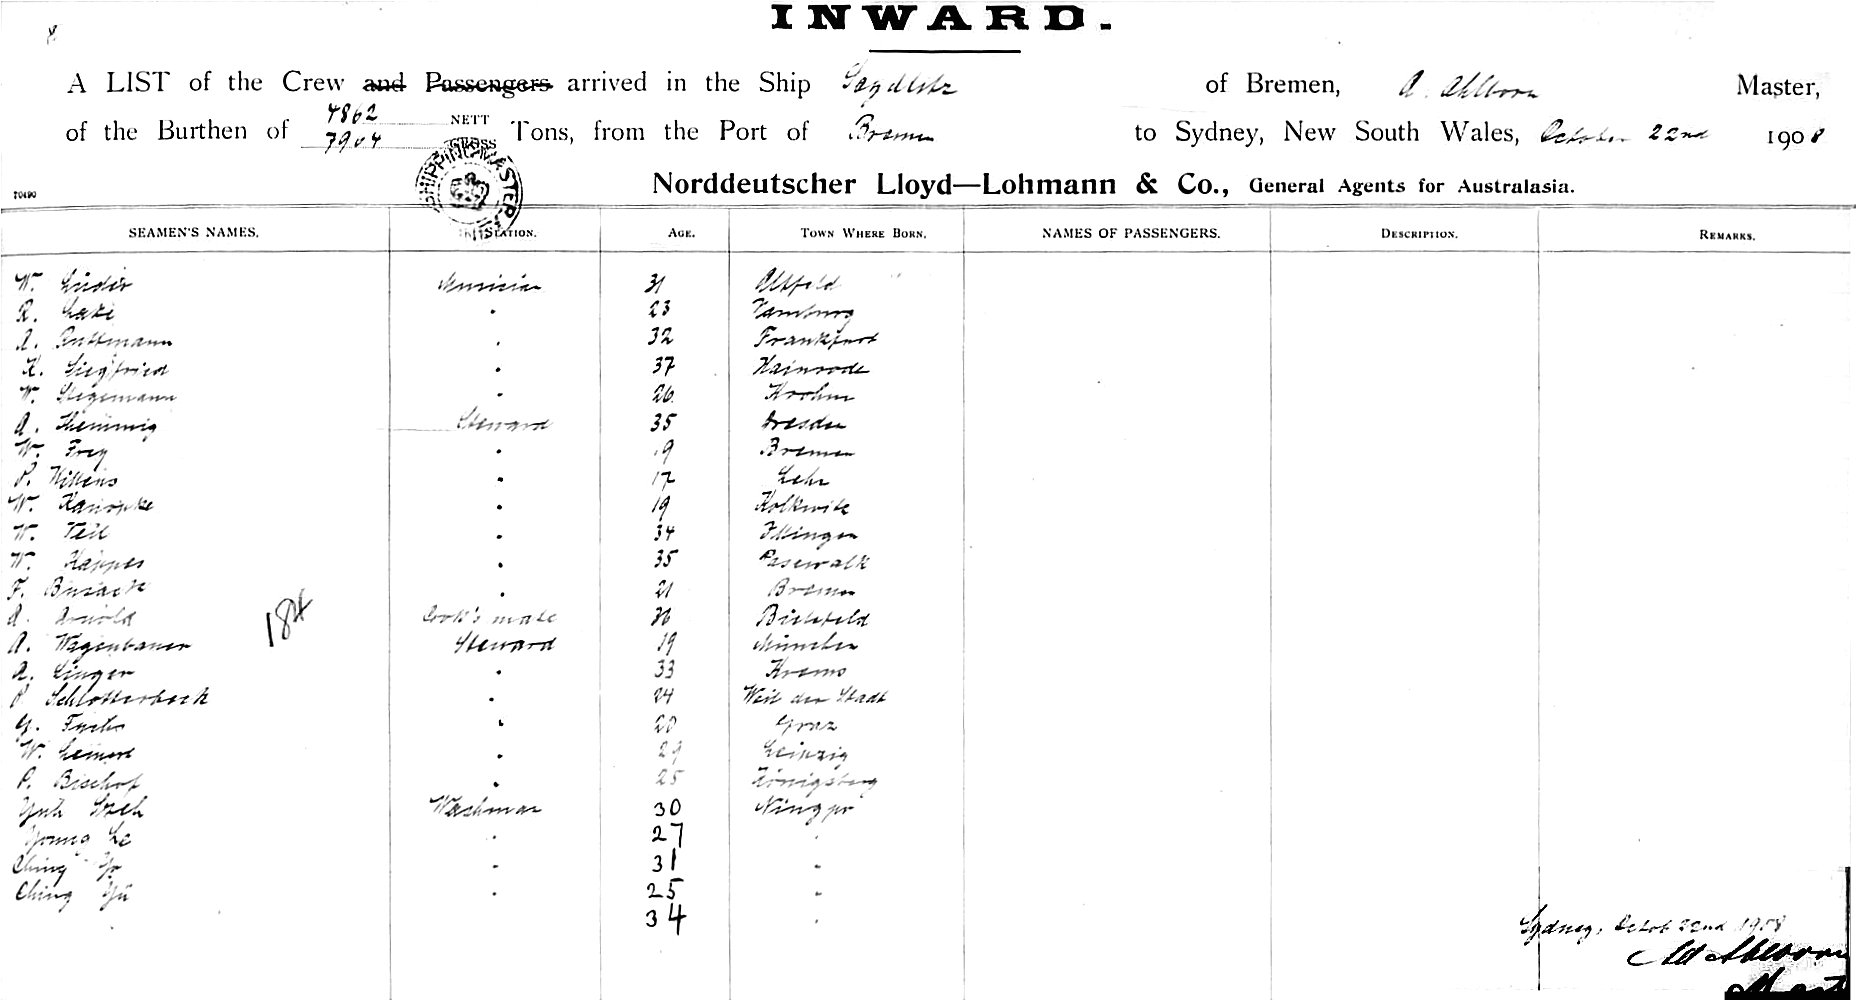 INWARD.
A LIST of the Crew and Passengers arrived in the Ship Seydlitz of Bremen, A. Ahlborn Master,
4862 NETT
of the Burthen of 7904 GROSS Tons, from the Port of Bremen to Sydney, New South Wales, October 22nd 1908
SHIPPING MASTER
70490 Norddeutscher Lloyd—Lohmann & Co., General Agents for Australasia.
SEAMEN'S NAMES. STATION. AGE. TOWN WHERE BORN. NAMES OF PASSENGERS. DESCRIPTION. REMARKS.
W. Musician 31 Altfeld
R. " 23 Hamburg
A. Ruttmann " 32 Frankfurt
K. Siegfried " 37 Hainrode
W. Stegemann " 26
A. Hemmig Steward 35 Dresden
W. Frey " 19 Bremen
P. " 17 Lehr
W. Kanopke " 19 Kolkwitz
W. Veit " 34
W. Hannes " 35 Pasewalk
F. " 21 Bremen
A. Arnold Cook's mate 36 Bielefeld
184
A. Wagenbauer Steward 19 München
A. Singer " 33 Krems
P. Schlotterbeck " 24 Weil der Stadt
G. Fuchs " 20 Graz
W. " 29 Leipzig
P. Bischof " 25 Königsberg
Washman 30 Ningpo
Young " 27 "
Ching Yo " 31 "
Ching Yü " 25 "
" 34 "
Sydney, Octob 22nd 1908
A Ahlborn